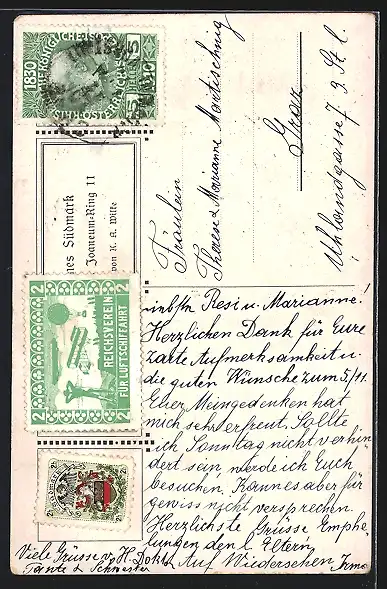 1830
1910
5
nes Südmark
Joaneum-Ring 11
von K. A. Wilke
Fräulein
Therese u. Marianne Martischnig
Graz
Uhlandgasse 7, 3. St. l.
2 2
REICHSVEREIN
FÜR LUFTSCHIFFAHRT
2 2
Resi u. Marianne!
Herzlichen Dank für Eure
zarte Aufmerksamkeit u.
die guten Wünsche zum 5./11.
Euer Meingedenken hat
mich sehr erfreut. Sollte
ich Sonntag nicht verhin
dert sein werde ich Euch
besuchen. Kann es aber für
gewiss nicht versprechen.
Herzlichste Grüsse Empfeh
lungen den l. Eltern
Auf Wiedersehen Irma
Viele Grüsse v. H. Dokt.
Tante u. Schwester
2 2
Südmark